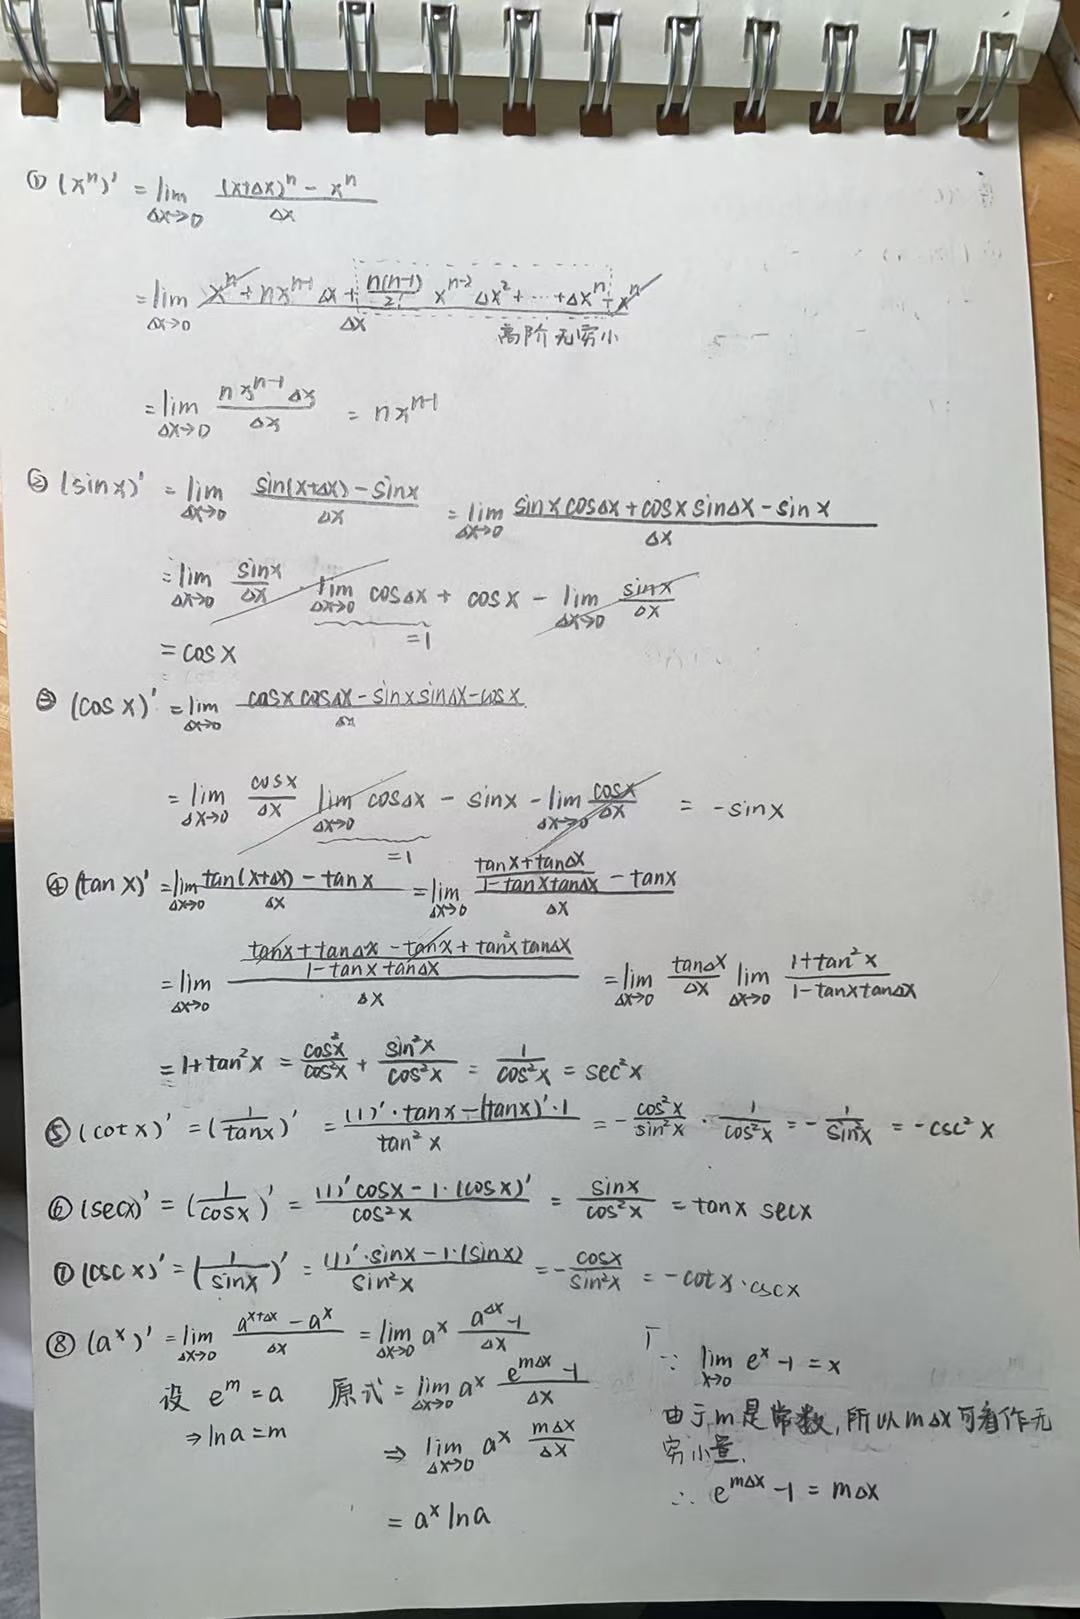 ① (xⁿ)' = lim Δx→0 ((x+Δx)ⁿ - xⁿ)/Δx
= lim Δx→0 (xⁿ + nxⁿ⁻¹ Δx + n(n-1)/2! xⁿ⁻² Δx² + ··· + Δxⁿ - xⁿ)/Δx
高阶无穷小
= lim Δx→0 (n xⁿ⁻¹ Δx)/Δx = nxⁿ⁻¹
② (sinx)' = lim Δx→0 (sin(x+Δx) - sinx)/Δx = lim Δx→0 (sinx cosΔx + cosx sinΔx - sinx)/Δx
= lim Δx→0 sinx/Δx · lim Δx→0 cosΔx + cosx - lim Δx→0 sinx/Δx
=1
= cosx
③ (cosx)' = lim Δx→0 (cosx cosΔx - sinx sinΔx - cosx)/Δx
= lim Δx→0 cosx/Δx lim Δx→0 cosΔx - sinx - lim Δx→0 cosx/Δx = -sinx
=1
④ (tanx)' = lim Δx→0 (tan(x+Δx) - tanx)/Δx = lim Δx→0 ((tanx+tanΔx)/(1-tanxtanΔx) - tanx)/Δx
= lim Δx→0 ((tanx + tanΔx - tanx + tan²x tanΔx)/(1-tanx tanΔx))/Δx = lim Δx→0 tanΔx/Δx lim Δx→0 (1+tan²x)/(1-tanxtanΔx)
= 1+tan²x = cos²x/cos²x + sin²x/cos²x = 1/cos²x = sec²x
⑤ (cotx)' = (1/tanx)' = ((1)'·tanx - (tanx)'·1)/tan²x = - cos²x/sin²x · 1/cos²x = - 1/sin²x = -csc²x
⑥ (secx)' = (1/cosx)' = ((1)'cosx - 1·(cosx)')/cos²x = sinx/cos²x = tanx secx
⑦ (cscx)' = (1/sinx)' = ((1)'·sinx - 1·(sinx))/sin²x = - cosx/sin²x = -cotx·cscx
⑧ (aˣ)' = lim Δx→0 (a^(x+Δx) - aˣ)/Δx = lim Δx→0 aˣ (a^Δx - 1)/Δx
设 e^m = a 原式 = lim Δx→0 aˣ (e^(mΔx) - 1)/Δx
⇒ lna = m ⇒ lim Δx→0 aˣ mΔx/Δx
= aˣ lna
「∵ lim x→0 eˣ - 1 = x
由于m是常数,所以mΔx可看作无
穷小量.
∴ e^(mΔx) - 1 = mΔx